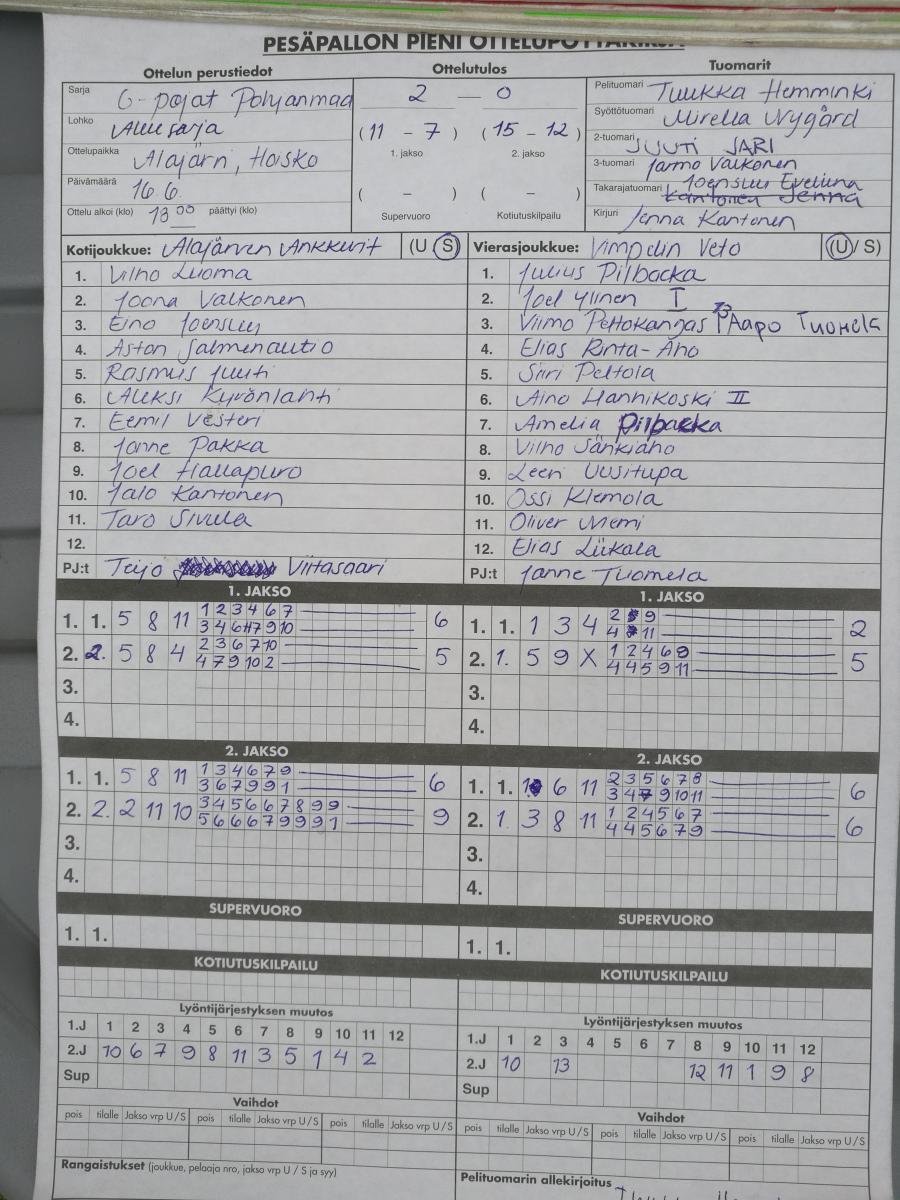 Ottelun perustiedot Ottelutulos Tuomarit
Sarja G-pojat Pohjanmaa
Lohko Aluesarja
Ottelupaikka Alajärvi, Hoisko
Päivämäärä 16.6.
Ottelu alkoi (klo) 18 00 päättyi (klo)
2 — 0
(11 - 7) (15 - 12)
1. jakso 2. jakso
( - ) ( - )
Supervuoro Kotiutuskilpailu
Pelituomari Tuukka Hemminki
Syöttötuomari Mirella Nygård
2-tuomari JUUTI JARI
3-tuomari Jarmo Valkonen
Takarajatuomari Joensuu Eveliina
Kantonen Jenna
Kirjuri Jenna Kantonen
Kotijoukkue: Alajärven Ankkurit (U S) Vierasjoukkue: Vimpelin Veto (U / S)
1. Vilho Luoma 1. Julius Pilbacka
2. Joona Valkonen 2. Joel Ylinen I
3. Eino Joensuu 3. Viimo Peltokangas 13 Aapo Tuomela
4. Aston Salmenautio 4. Elias Rinta-Aho
5. Rasmus Juuti 5. Siiri Peltola
6. Aleksi Kyrönlahti 6. Aino Hannikoski II
7. Eemil Vesteri 7. Amelia Pilbacka
8. Janne Pakka 8. Vilho Sänkiaho
9. Joel Hallapuro 9. Leevi Uusitupa
10. Jalo Kantonen 10. Ossi Klemola
11. Taro Sivula 11. Oliver Niemi
12. 12. Elias Liikala
PJ:t Teijo Viitasaari PJ:t Janne Tuomela
1. JAKSO 1. JAKSO
1. 1. 5 8 11 1 2 3 4 6 7 6
3 4 6 7 9 10
2. 2. 5 8 4 2 3 6 7 10 5
4 7 9 10 2
3.
4.
1. 1. 1 3 4 2 9 2
4 11
2. 1. 5 9 X 1 2 4 6 9 5
4 4 5 9 11
3.
4.
2. JAKSO 2. JAKSO
1. 1. 5 8 11 1 3 4 6 7 9 6
3 6 7 9 9 1
2. 2. 2 11 10 3 4 5 6 6 7 8 9 9 9
5 6 6 6 7 9 9 9 1
3.
4.
1. 1. 1 6 11 2 3 5 6 7 8 6
3 4 7 9 10 11
2. 1. 3 8 11 1 2 4 5 6 7 6
4 4 5 6 7 9
3.
4.
SUPERVUORO SUPERVUORO
1. 1. 1. 1.
KOTIUTUSKILPAILU KOTIUTUSKILPAILU
Lyöntijärjestyksen muutos Lyöntijärjestyksen muutos
1.J 1 2 3 4 5 6 7 8 9 10 11 12
2.J 10 6 7 9 8 11 3 5 1 4 2
Sup
1.J 1 2 3 4 5 6 7 8 9 10 11 12
2.J 10 13 12 11 1 9 8
Sup
Vaihdot Vaihdot
pois tilalle Jakso vrp U / S pois tilalle Jakso vrp U / S pois tilalle Jakso vrp U / S
pois tilalle Jakso vrp U / S pois tilalle Jakso vrp U / S pois tilalle Jakso vrp U / S
Rangaistukset (joukkue, pelaaja nro, jakso vrp U / S ja syy) Pelituomarin allekirjoitus